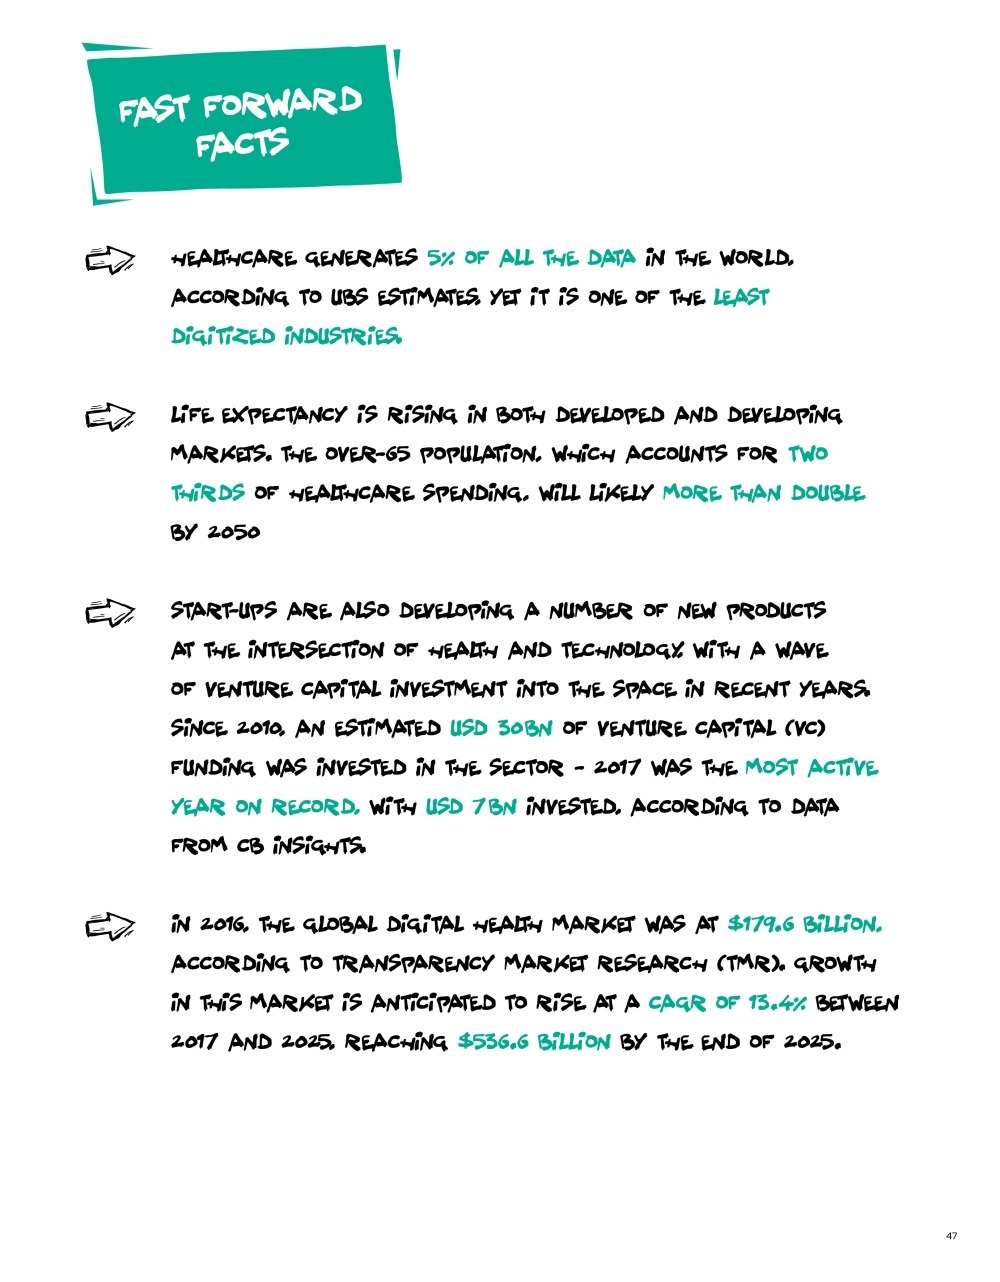 FAST FORWARD
FACTS
HEALTHCARE GENERATES 5% OF ALL THE DATA IN THE WORLD,
ACCORDING TO UBS ESTIMATES, YET IT IS ONE OF THE LEAST
DIGITIZED INDUSTRIES.
LIFE EXPECTANCY IS RISING IN BOTH DEVELOPED AND DEVELOPING
MARKETS. THE OVER-65 POPULATION, WHICH ACCOUNTS FOR TWO
THIRDS OF HEALTHCARE SPENDING, WILL LIKELY MORE THAN DOUBLE
BY 2050
START-UPS ARE ALSO DEVELOPING A NUMBER OF NEW PRODUCTS
AT THE INTERSECTION OF HEALTH AND TECHNOLOGY, WITH A WAVE
OF VENTURE CAPITAL INVESTMENT INTO THE SPACE IN RECENT YEARS.
SINCE 2010, AN ESTIMATED USD 30BN OF VENTURE CAPITAL (VC)
FUNDING WAS INVESTED IN THE SECTOR - 2017 WAS THE MOST ACTIVE
YEAR ON RECORD, WITH USD 7BN INVESTED, ACCORDING TO DATA
FROM CB INSIGHTS.
IN 2016, THE GLOBAL DIGITAL HEALTH MARKET WAS AT $179.6 BILLION,
ACCORDING TO TRANSPARENCY MARKET RESEARCH (TMR). GROWTH
IN THIS MARKET IS ANTICIPATED TO RISE AT A CAGR OF 13.4% BETWEEN
2017 AND 2025, REACHING $536.6 BILLION BY THE END OF 2025.
47